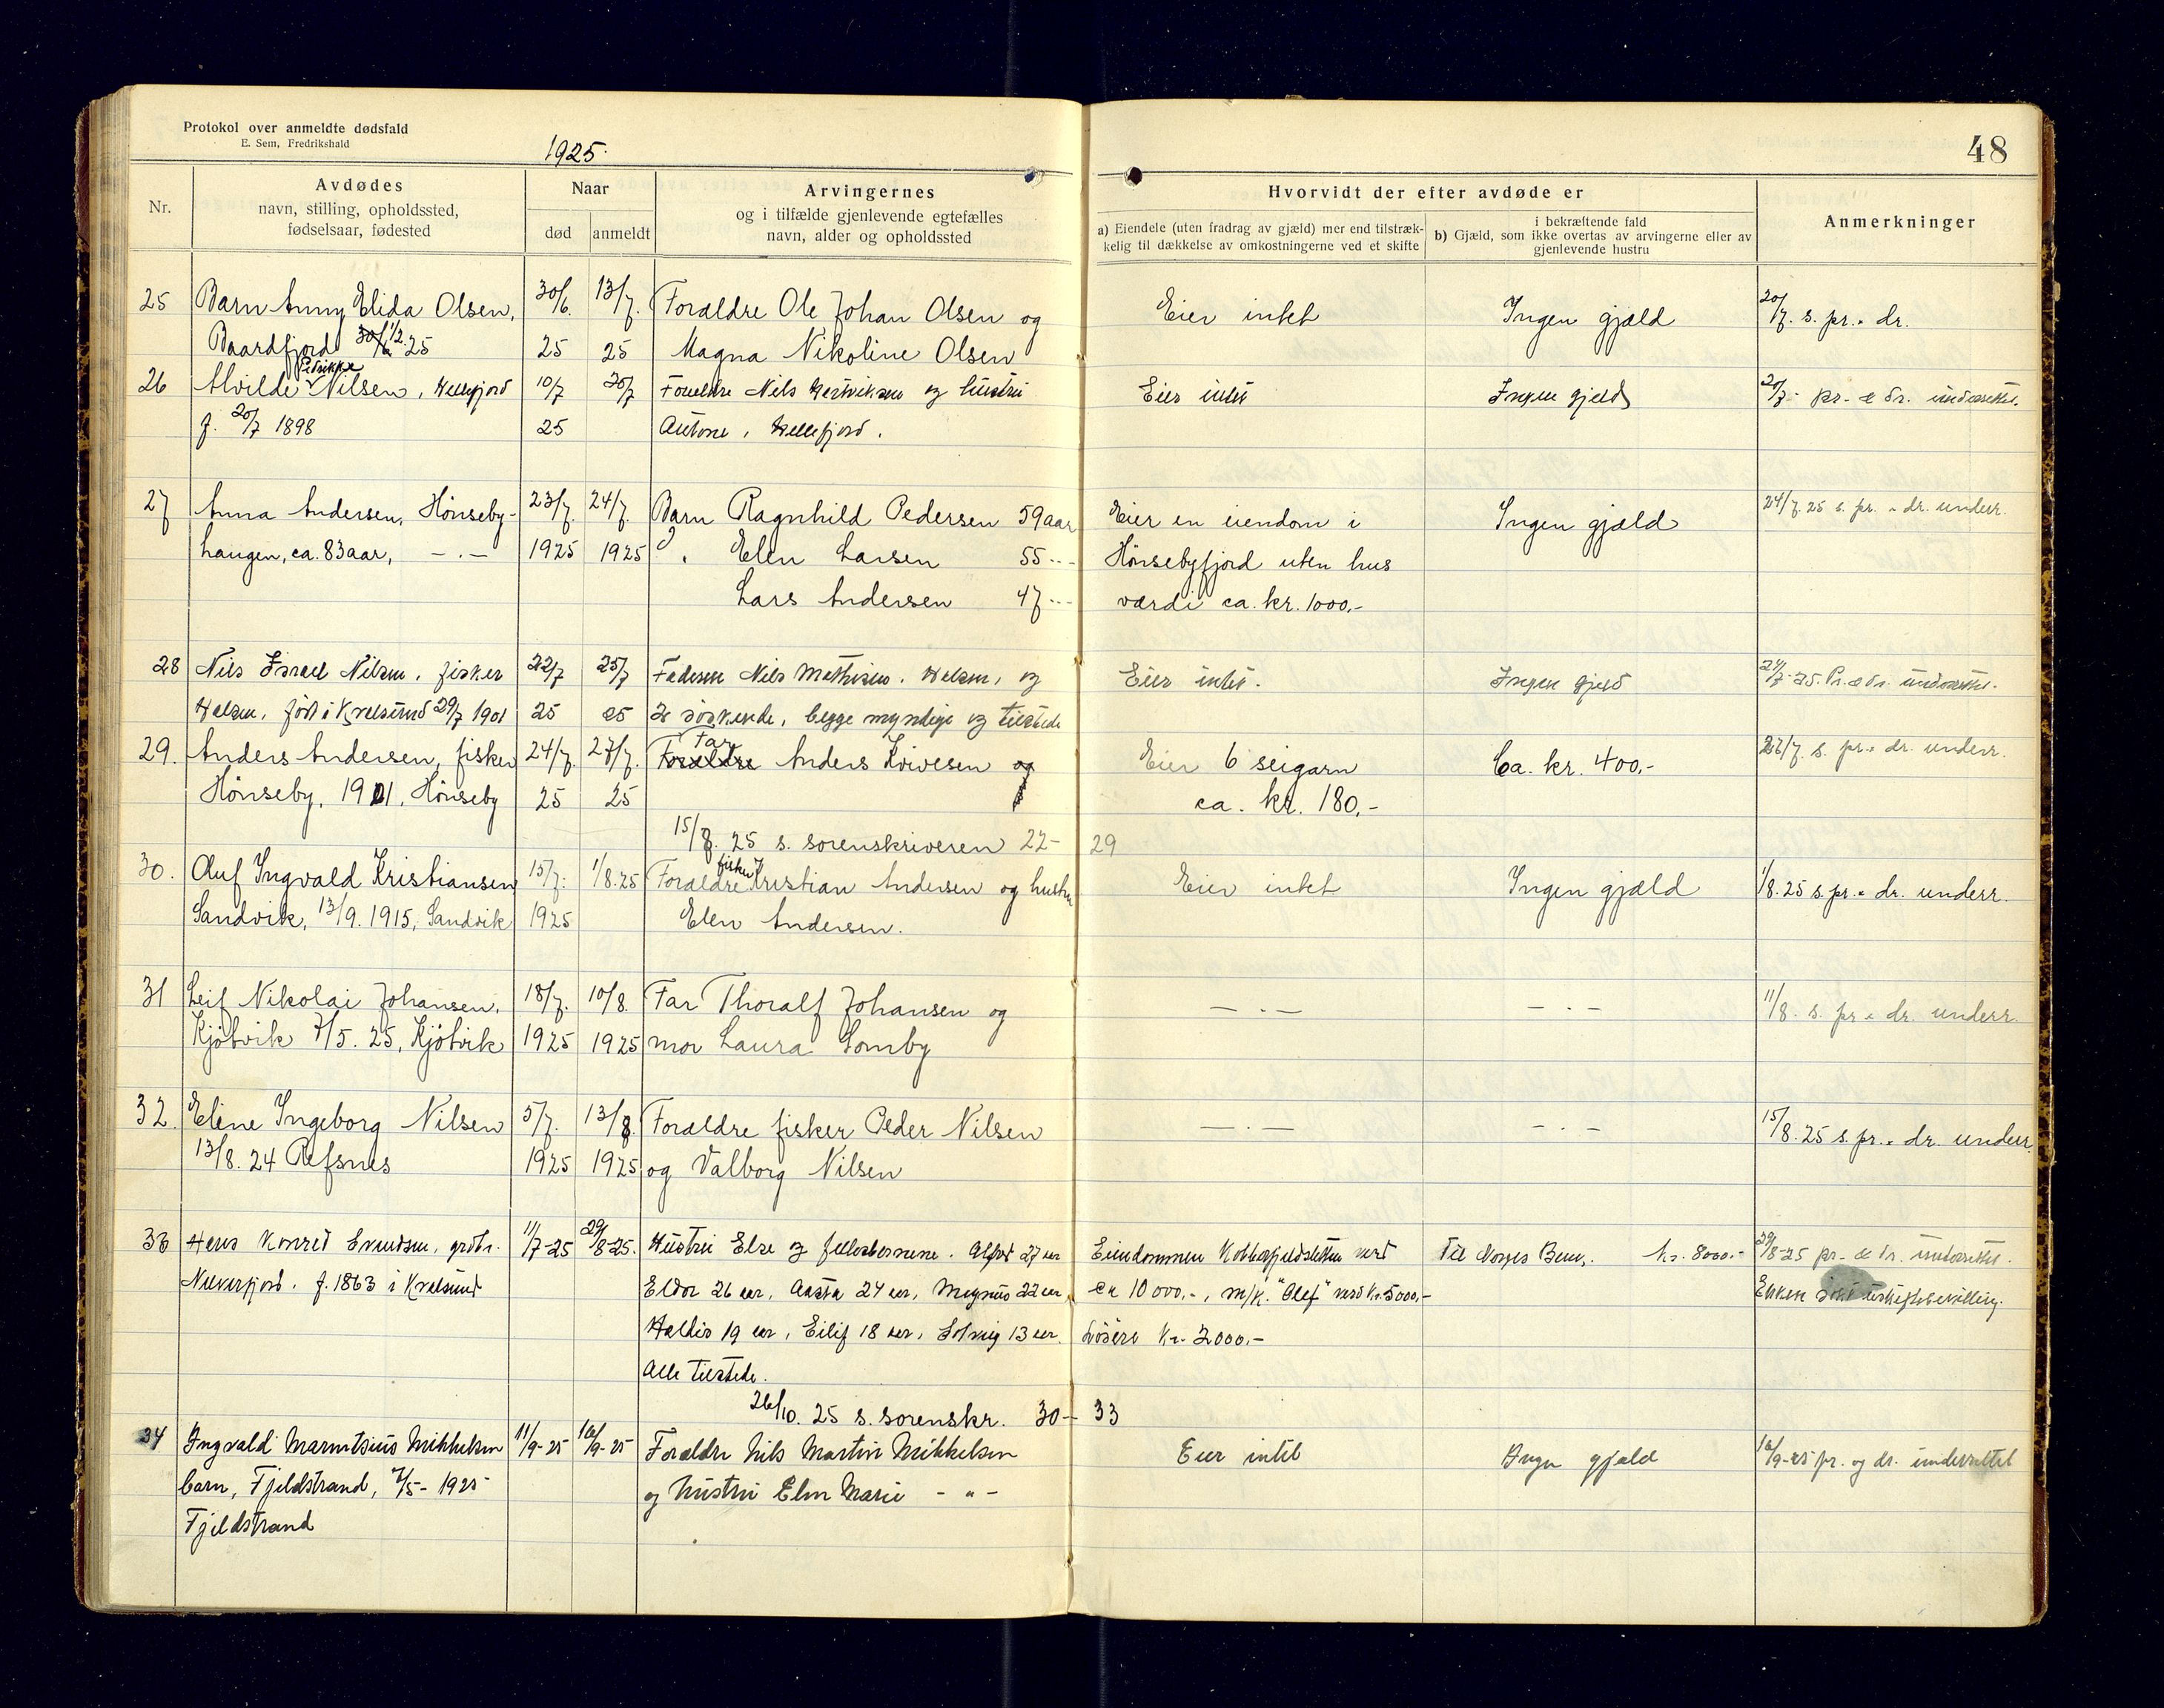 Protokol over anmeldte dødsfald
E. Sem, Fredrikshald
1925.
48
Nr.
Avdødes
navn, stilling, opholdssted,
fødselsaar, fødested
Naar
død
anmeldt
Arvingernes
og i tilfælde gjenlevende egtefælles
navn, alder og opholdssted
Hvorvidt der efter avdøde er
a) Eiendele (uten fradrag av gjæld) mer end tilstræk-
kelig til dækkelse av omkostningerne ved et skifte
i bekræftende fald
b) Gjæld, som ikke overtas av arvingerne eller av
gjenlevende hustru
Anmerkninger
25 Barn Anny Elida Olsen, 30/6. 13/7. Forældre Ole Johan Olsen og Eier intet Ingen gjæld 20/7. s. pr. " dr.
Baardfjord 25 25 25 Magna Nikoline Olsen
Petrikke
26 Alvilde Nilsen, Hellefjord 10/7 20/7 Forældre Nils Hertviksen og hustru Eier intet Ingen gjeld 20/7- pr- & dr. underrettet.
f. 20/7 1898 25 Antone, Hellefjord.
27 Anna Andersen, Hönseby- 23/7. 24/7. Barn Ragnhild Pedersen 59 aar Eier en eiendom i Ingen gjæld 24/7.25 s. pr. " dr. underr.
haugen, ca. 83 aar, — . — 1925 1925 " Elen Larsen 55 - " - Hönsebyfjord uten hus
Lars Andersen 47 - " - værdi ca. kr. 1000.-
28 Nils Israel Nilsen, fisker 22/7 25/7 Faderen Nils Mathisen, Halsen, og Eier intet. Ingen gjeld 24/7-25. Pr. & dr. underrettet.
Halsen, född i Kvalsund 29/7 1901 25 25 2 söskende, begge myndige og tilstede
29. Anders Andersen, fisker 24/7. 27/7. Forældre Far Anders Iversen og Eier 6 seigarn Ca. kr. 400.- 27/7. s. pr. " dr. underr.
Hönseby, 1901, Hönseby 25 25 ca. kr. 180.-
15/8. 25 s. sorenskriveren 22- 29
30. Oluf Ingvald Kristiansen 15/7. 1/8.25 Forældre fisker Kristian Andersen og hustru Eier intet Ingen gjæld 1/8.25 s. pr. " dr. underr.
Sandvik, 13/9. 1915, Sandvik 1925 Elen Andersen.
31 Leif Nikolai Johansen, 18/7. 10/8. Far Thoralf Johansen og — . — — . — 11/8. s. pr " dr. underr.
Kjötvik 7/5. 25, Kjötvik 1925 1925 mor Laura Somby
32. Eline Ingeborg Nilsen 5/7. 13/8. Forældre fisker Peder Nilsen — . — — . — 15/8.25 s. pr. " dr. underr.
13/8. 24 Refsnes 1925 1925 og Valborg Nilsen
33 Hans Konrad 11/7-25 29/8-25. Hustru Else og fellesbarnene. Alfred 27 aar Eiendommen Kobberfjeldsletten verd Til Norges Bank. kr. 8000.- 29/8-25 pr- & dr. underrettet.
f. 1863 i Kvalsund Eldor 26 aar, Aasta 24 aar, Magnus 22 aar, ca 10 000.-, m/k. "Olef" verd kr. 5000.- Enken uskiftebevilling.
Haldis 19 aar, Eilif 18 aar, Solveig 13 aar. Lösöre kr. 2000.-
Alle tilstede.
26/10. 25 s. sorenskr. 30- 33
34 Ingvald Mikkelsen 11/9-25 16/9-25 Forældre Nils Martin Mikkelsen Eier intet Ingen gjæld 16/9-25 pr. og dr. underrettet
barn, Fjeldstrand, 7/5- 1925 og hustru Elen Marie - " -
Fjeldstrand